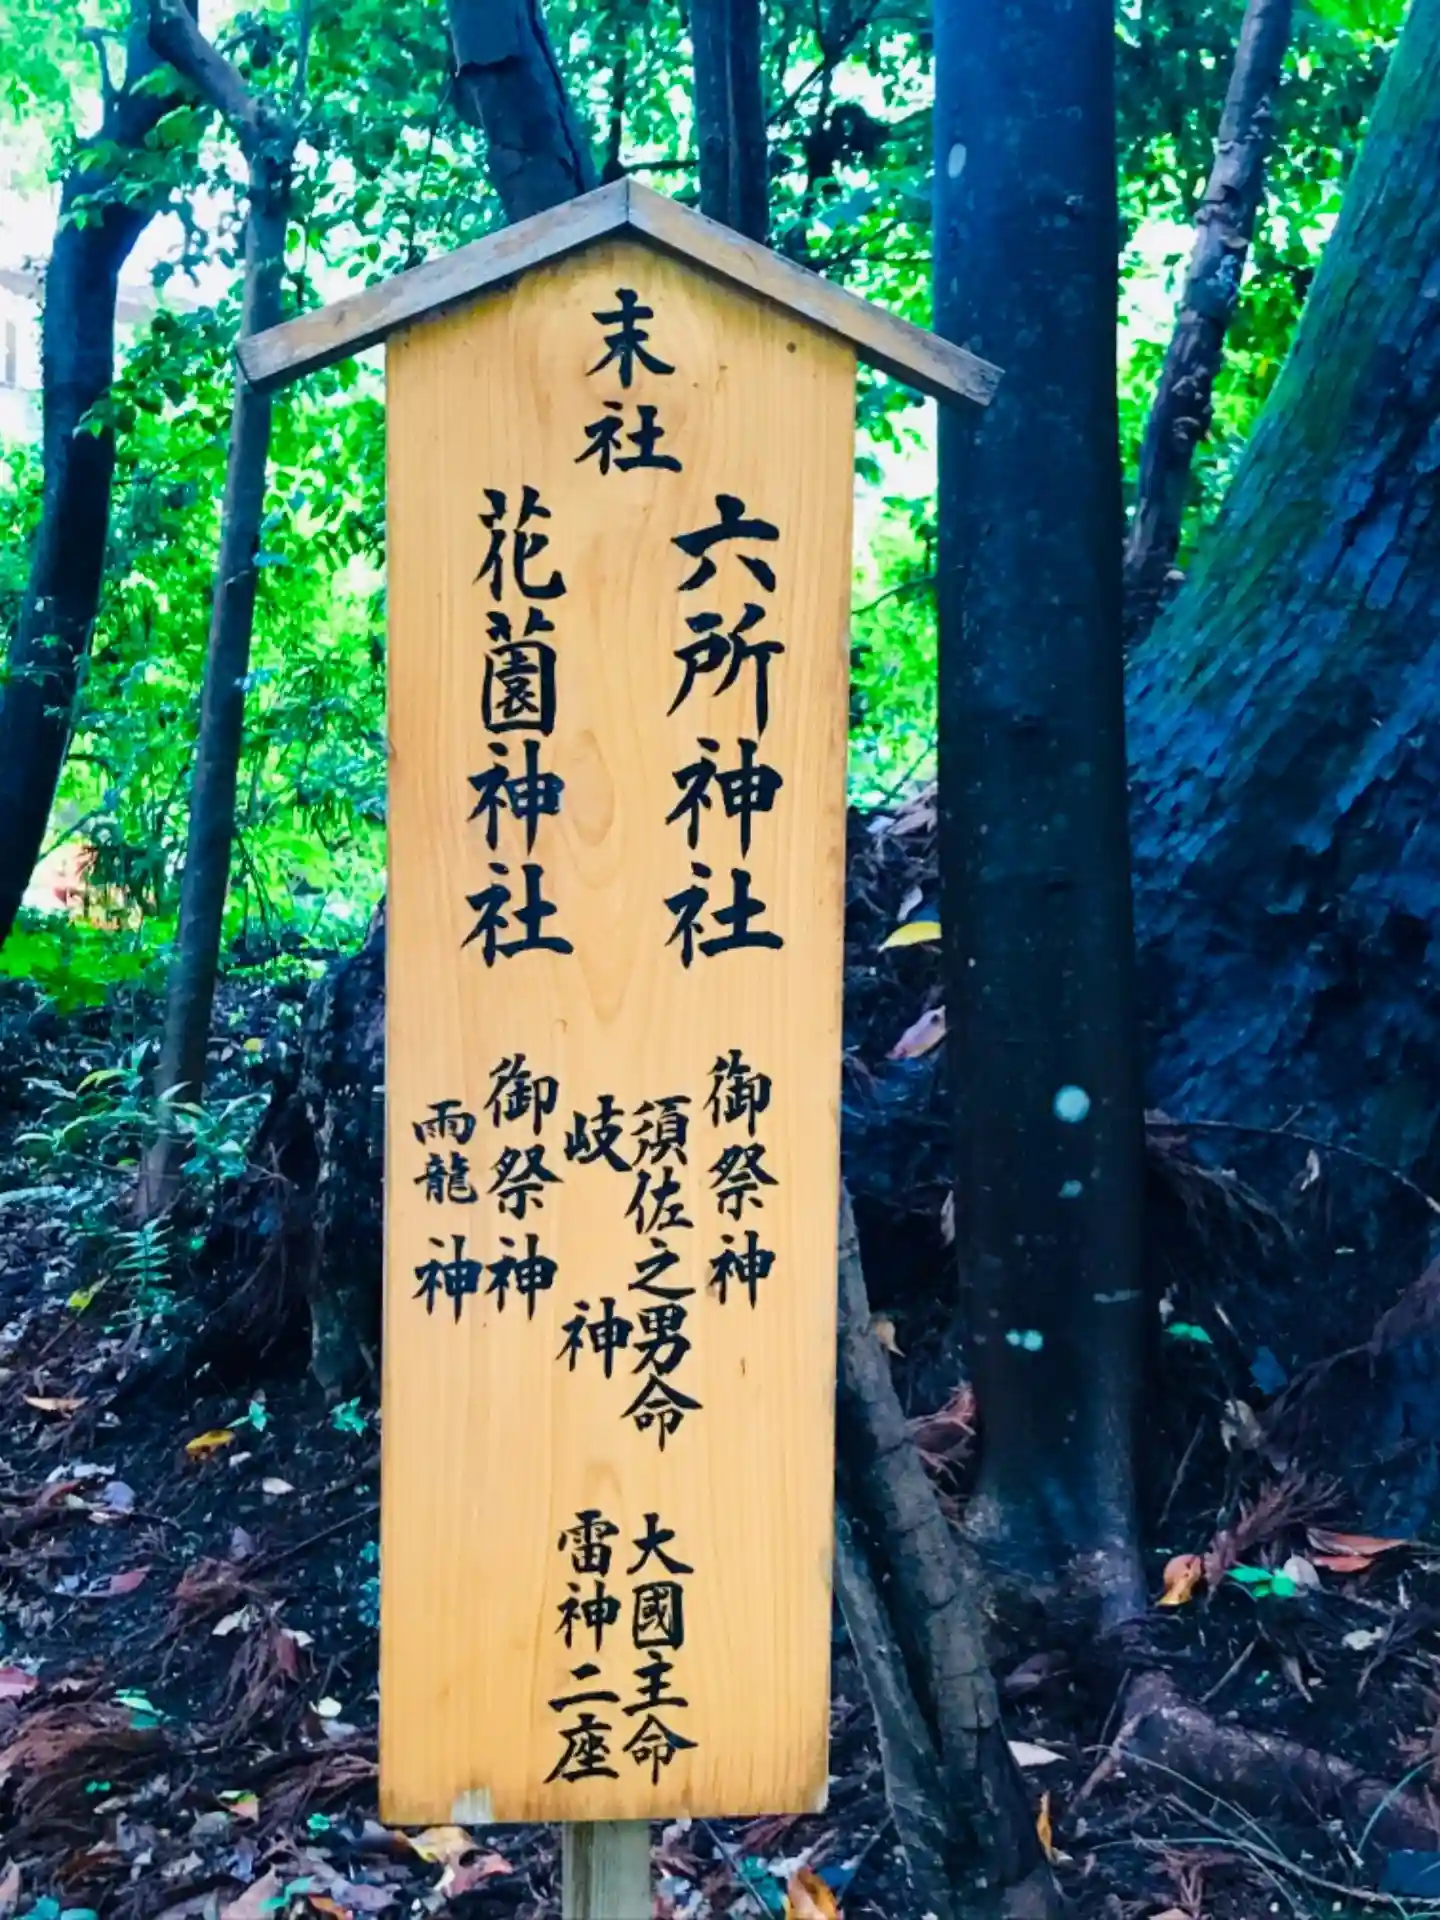 末社
六所神社
御祭神
須佐之男命 大國主命
岐神 雷神二座
花薗神社
御祭神
雨龍神